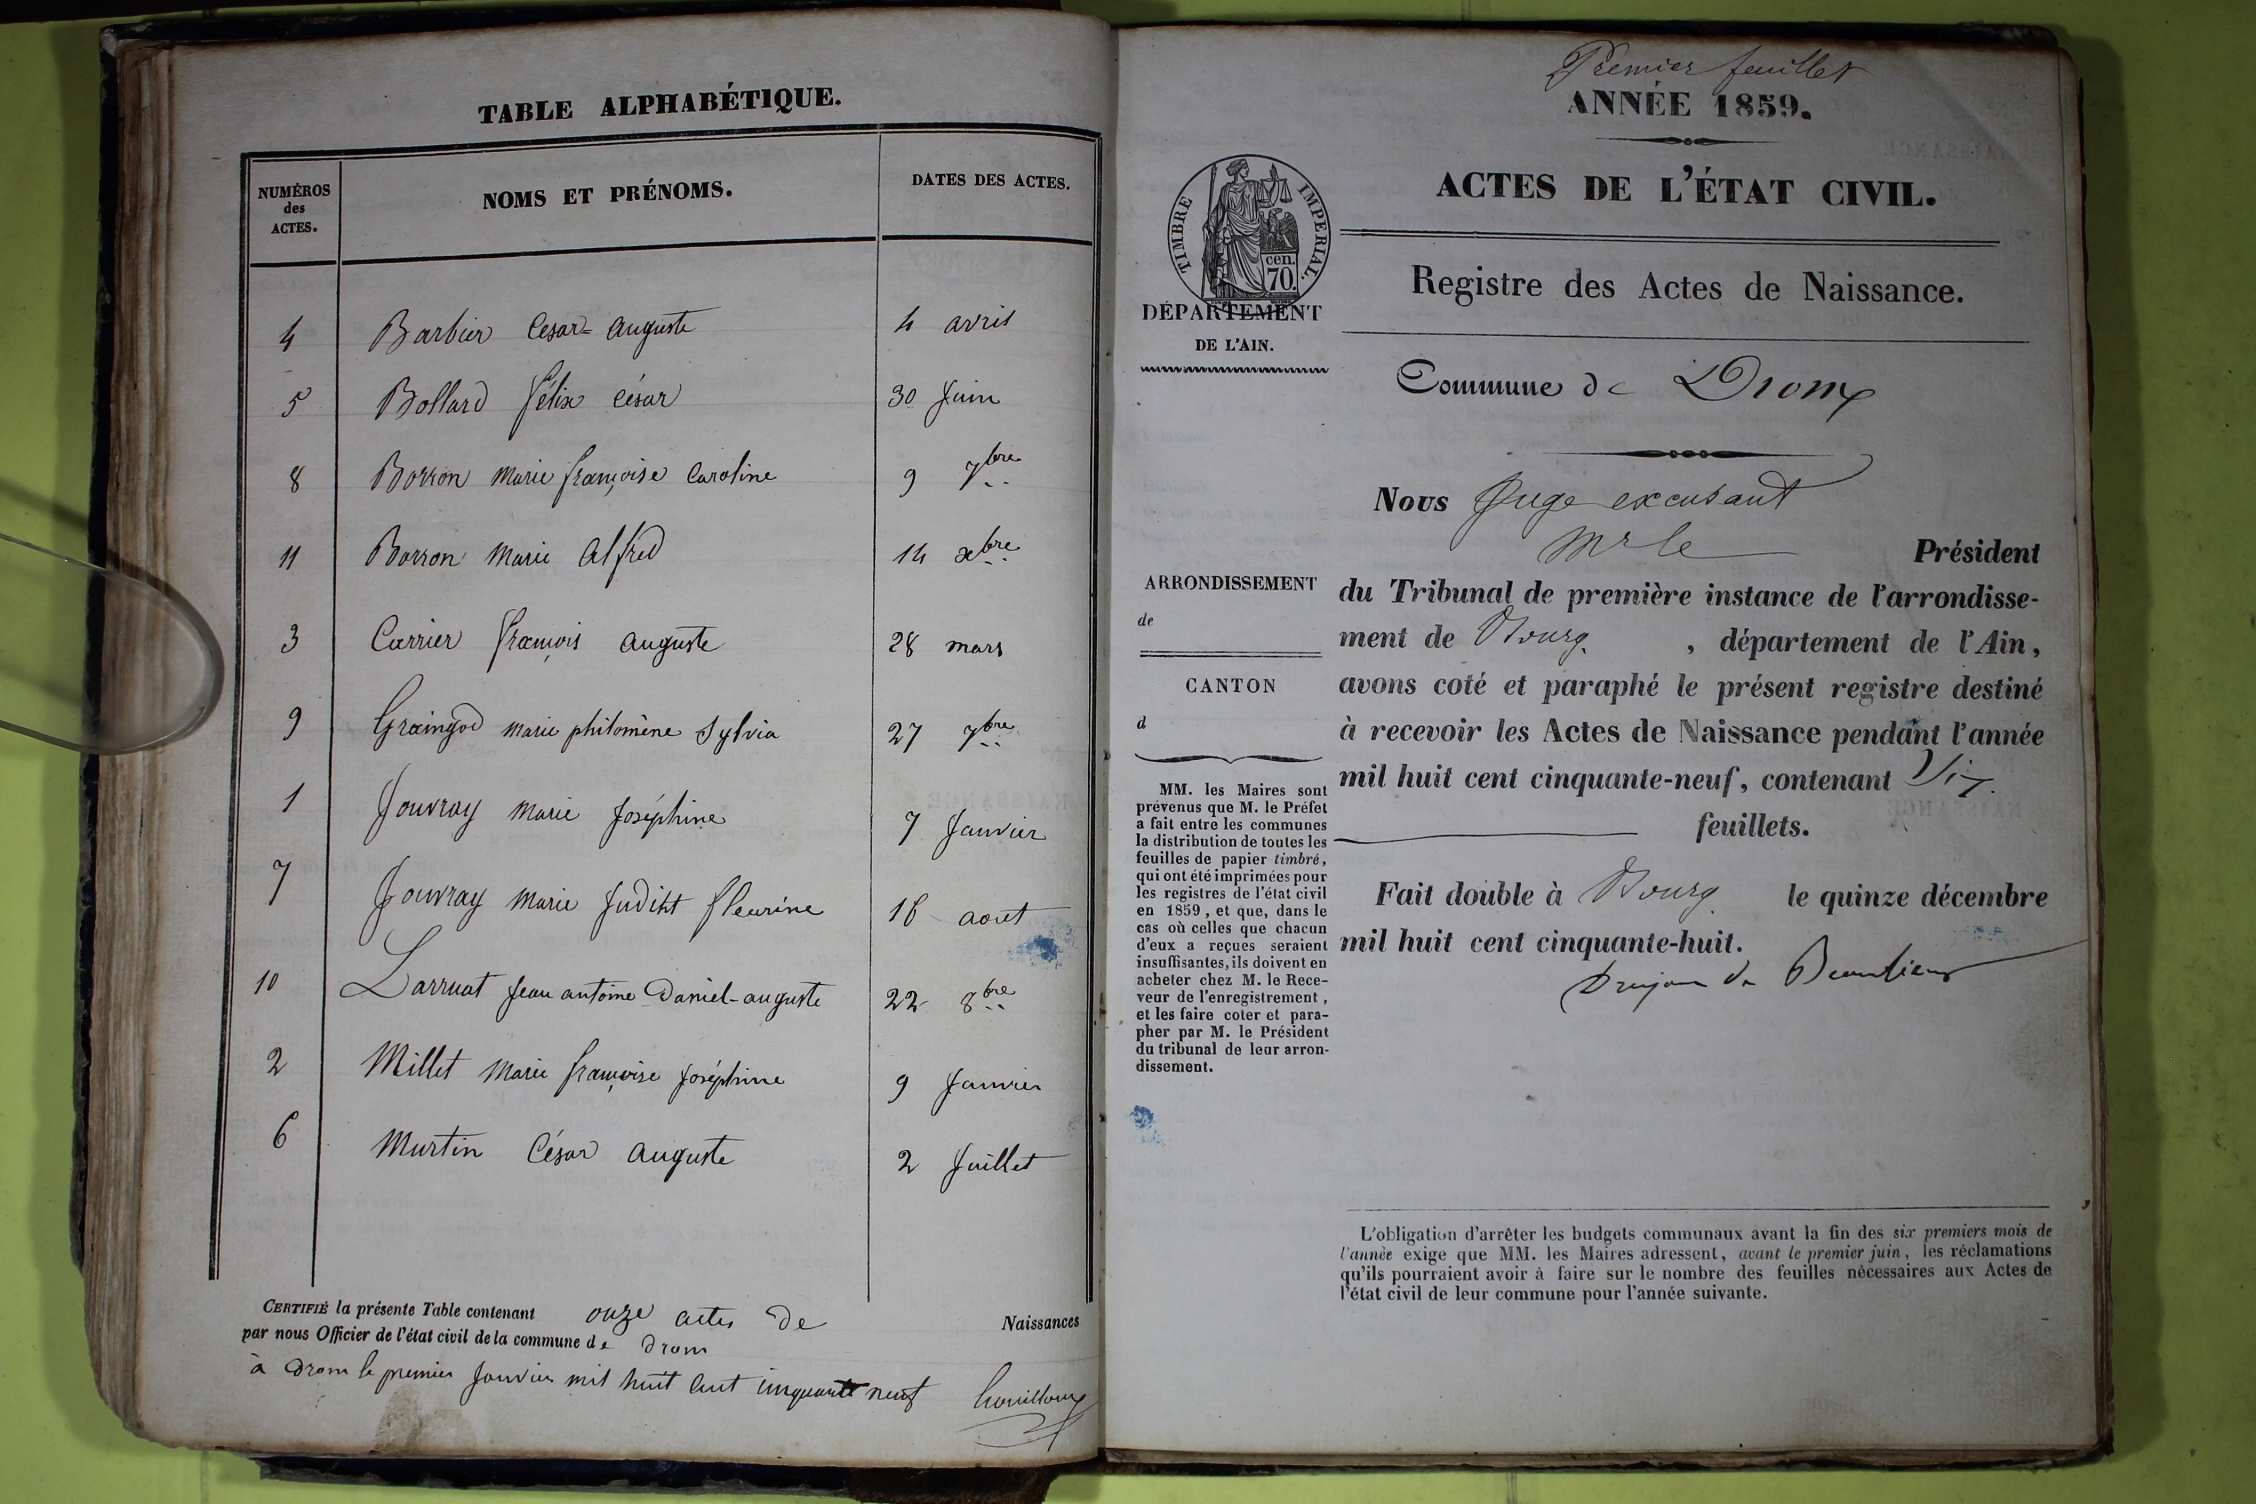 TABLE ALPHABÉTIQUE.
NUMÉROS des ACTES.
NOMS ET PRÉNOMS.
DATES DES ACTES.
4 Barbier Cesar=auguste 4 avril
5 Bollard félix César 30 Juin
8 Borron Marie françoise Caroline 9 7bre
11 Borron Marie Alfred 14 xbre
3 Carrier françois auguste 28 mars
9 marie philomène Sylvia 27 7bre
1 Jouvray Marie Joséphine 7 Janvier
7 Jouvray Marie Judiht fleurine 16 aout
10 Larruat Jean antoine Daniel-auguste 22 8bre
2 Millet Marie françoise Joséphine 9 Janvier
6 Murtin César auguste 2 Juillet
CERTIFIÉ la présente Table contenant onze actes de Naissances
par nous Officier de l'état civil de la commune de drom
à drom le premier Janvier mil huit cent cinquante neuf
Premier feuillet
ANNÉE 1859.
ACTES DE L'ÉTAT CIVIL.
TIMBRE IMPERIAL
cen.
70.
DÉPARTEMENT
DE L'AIN.
Registre des Actes de Naissance.
Commune de Drom
Nous Juge excusant
Mr le Président
du Tribunal de première instance de l'arrondisse-
ment de Bourg, département de l'Ain,
avons coté et paraphé le présent registre destiné
à recevoir les Actes de Naissance pendant l'année
mil huit cent cinquante-neuf, contenant
feuillets.
Fait double à Bourg le quinze décembre
mil huit cent cinquante-huit.
Drujon de Beaulieu
ARRONDISSEMENT
de
CANTON
d
MM. les Maires sont
prévenus que M. le Préfet
a fait entre les communes
la distribution de toutes les
feuilles de papier timbré,
qui ont été imprimées pour
les registres de l'état civil
en 1859, et que, dans le
cas où celles que chacun
d'eux a reçues seraient
insuffisantes, ils doivent en
acheter chez M. le Rece-
veur de l'enregistrement,
et les faire coter et para-
pher par M. le Président
du tribunal de leur arron-
dissement.
L'obligation d'arrêter les budgets communaux avant la fin des six premiers mois de
l'année exige que MM. les Maires adressent, avant le premier juin, les réclamations
qu'ils pourraient avoir à faire sur le nombre des feuilles nécessaires aux Actes de
l'état civil de leur commune pour l'année suivante.